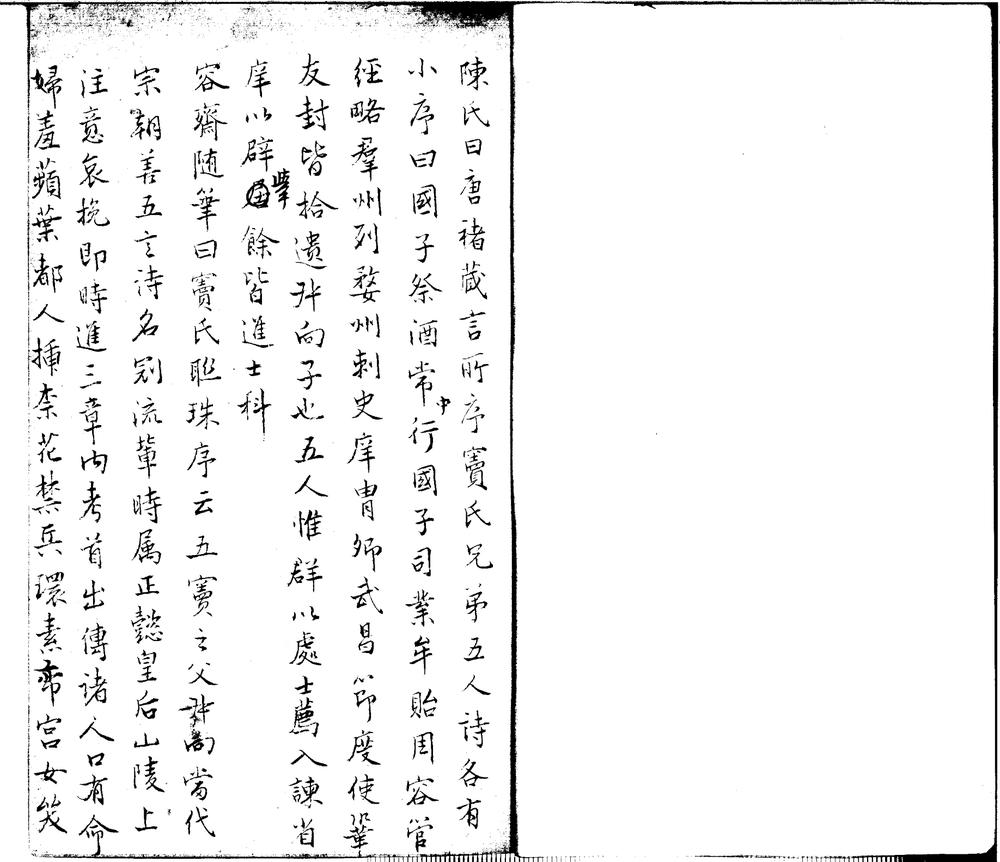 陳氏曰唐褚藏言所序竇氏兄弟五人詩各有
小序曰國子祭酒常中行國子司業牟貽周容管
經略羣州列婺州刺史庠胄卿武昌節度使鞏
友封皆拾遺叔向子也五人惟群以處士薦入諫省
庠以辟掌餘皆進士科
容齋随筆曰竇氏聮珠序云五竇之父叔向當代
宗朝善五言詩名冠流輩時属正懿皇后山陵上
注意哀挽即時進三章内考首出傳諸人口有命
婦羞蘋葉都人揷柰花禁兵環素帟宫女笑